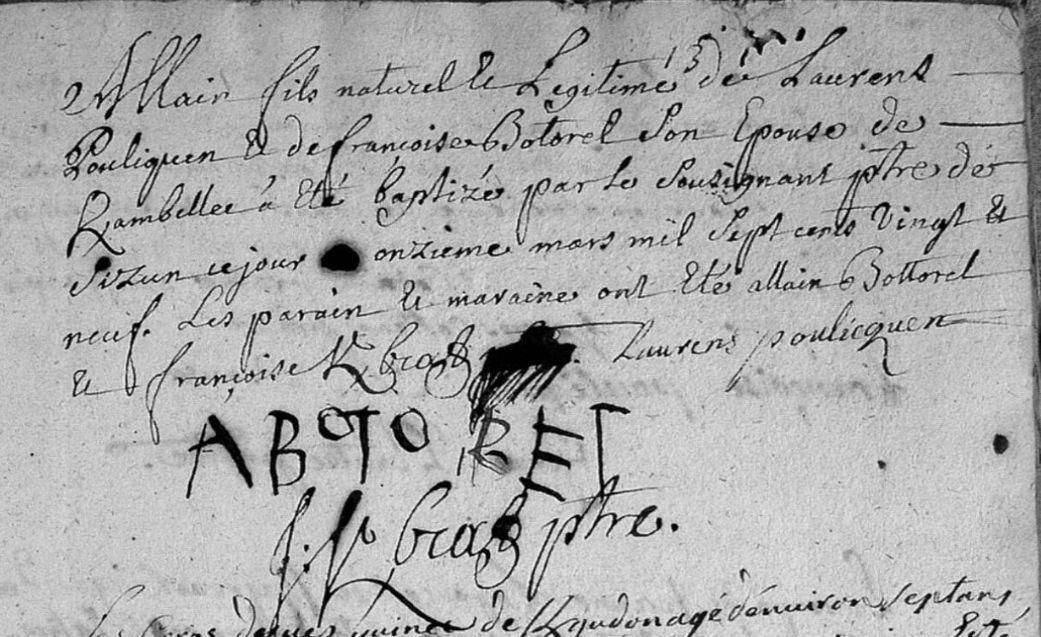 Allain fils naturel et Legitime de Laurens
Pouliquen et de françoise Botorel Son Epouse de
Kambellec a été baptizé par le Sousignant ptre de
Sizun ce jour onzieme mars mil Sept cents vingt et
neuf. Les parain et maraine ont été allain Bottorel
et françoise Kbraz Laurens poulicquen
ABOTOREL
f. K braz ptre.
de Kgudon agé d'enuiron Septans